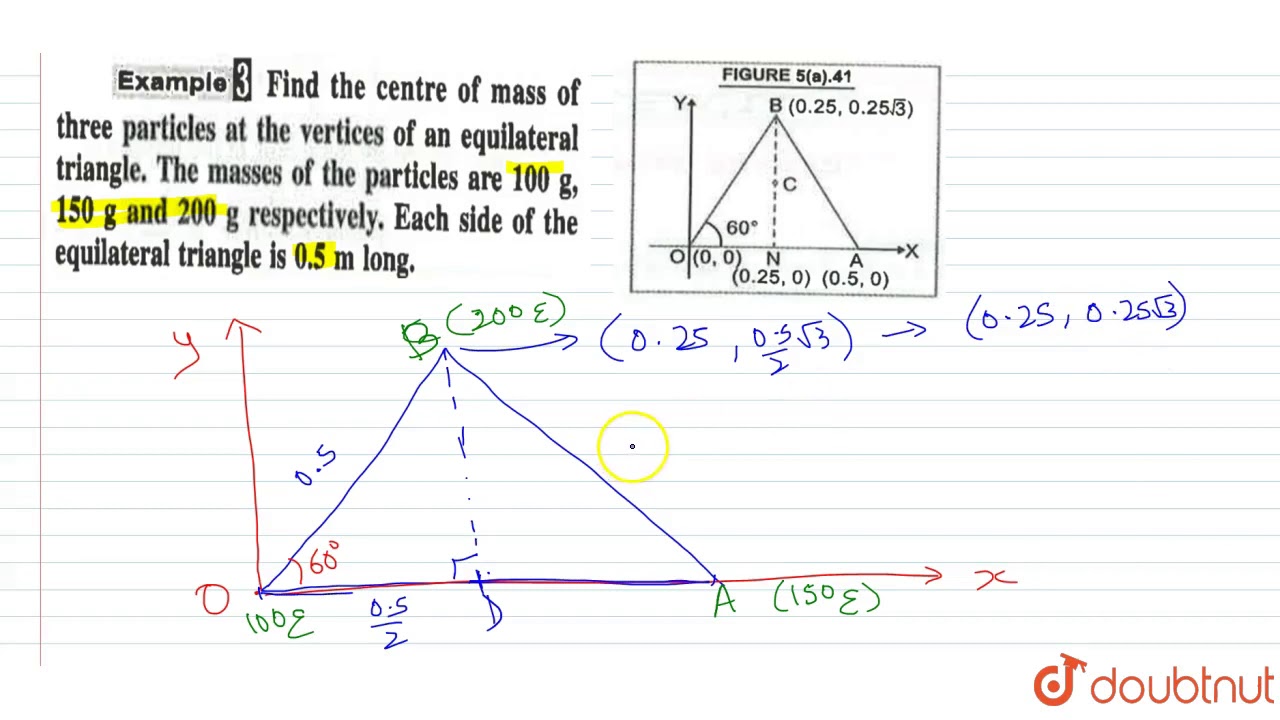 Example 3 Find the centre of mass of
three particles at the vertices of an equilateral
triangle. The masses of the particles are 100 g,
150 g and 200 g respectively. Each side of the
equilateral triangle is 0.5 m long.
FIGURE 5(a).41
Y
B (0.25, 0.25√3)
C
60°
X
O (0, 0) N A
(0.25, 0) (0.5, 0)
y
B (200g) → (0.25, 0.5/2 √3) → (0.25, 0.25√3)
0.5
60°
x
O
100g
0.5/2
D
A (150g)
doubtnut